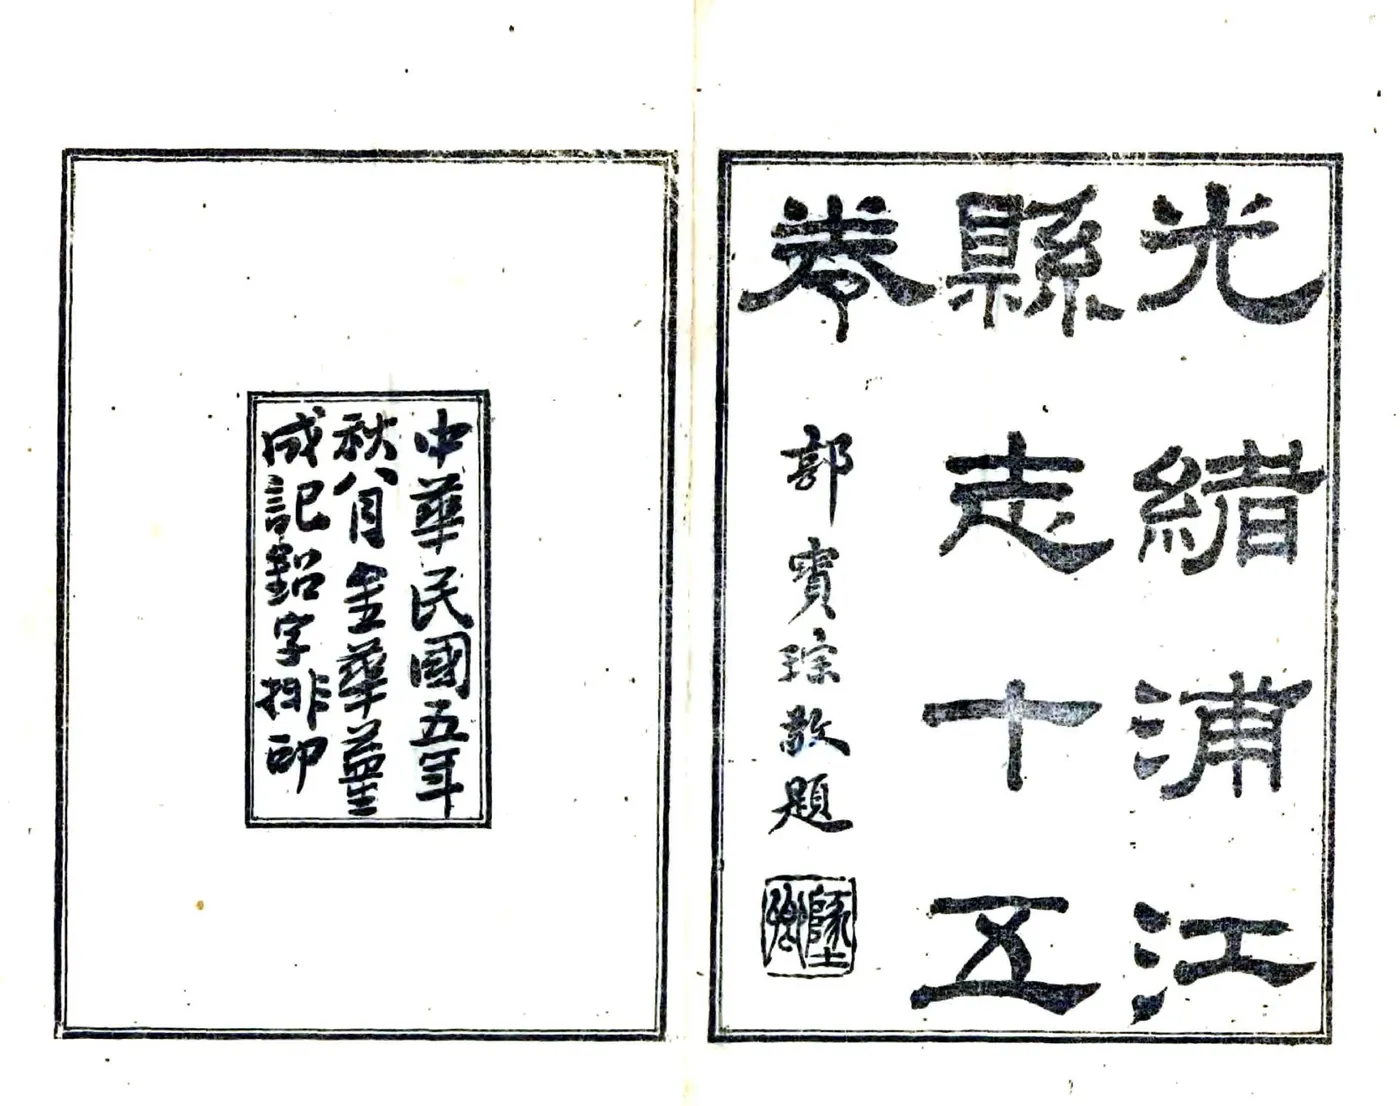 光緒浦江
縣志十五
卷
郭賓琮敬題
中華民國五年
秋八月金華蓋
成記鉛字排印